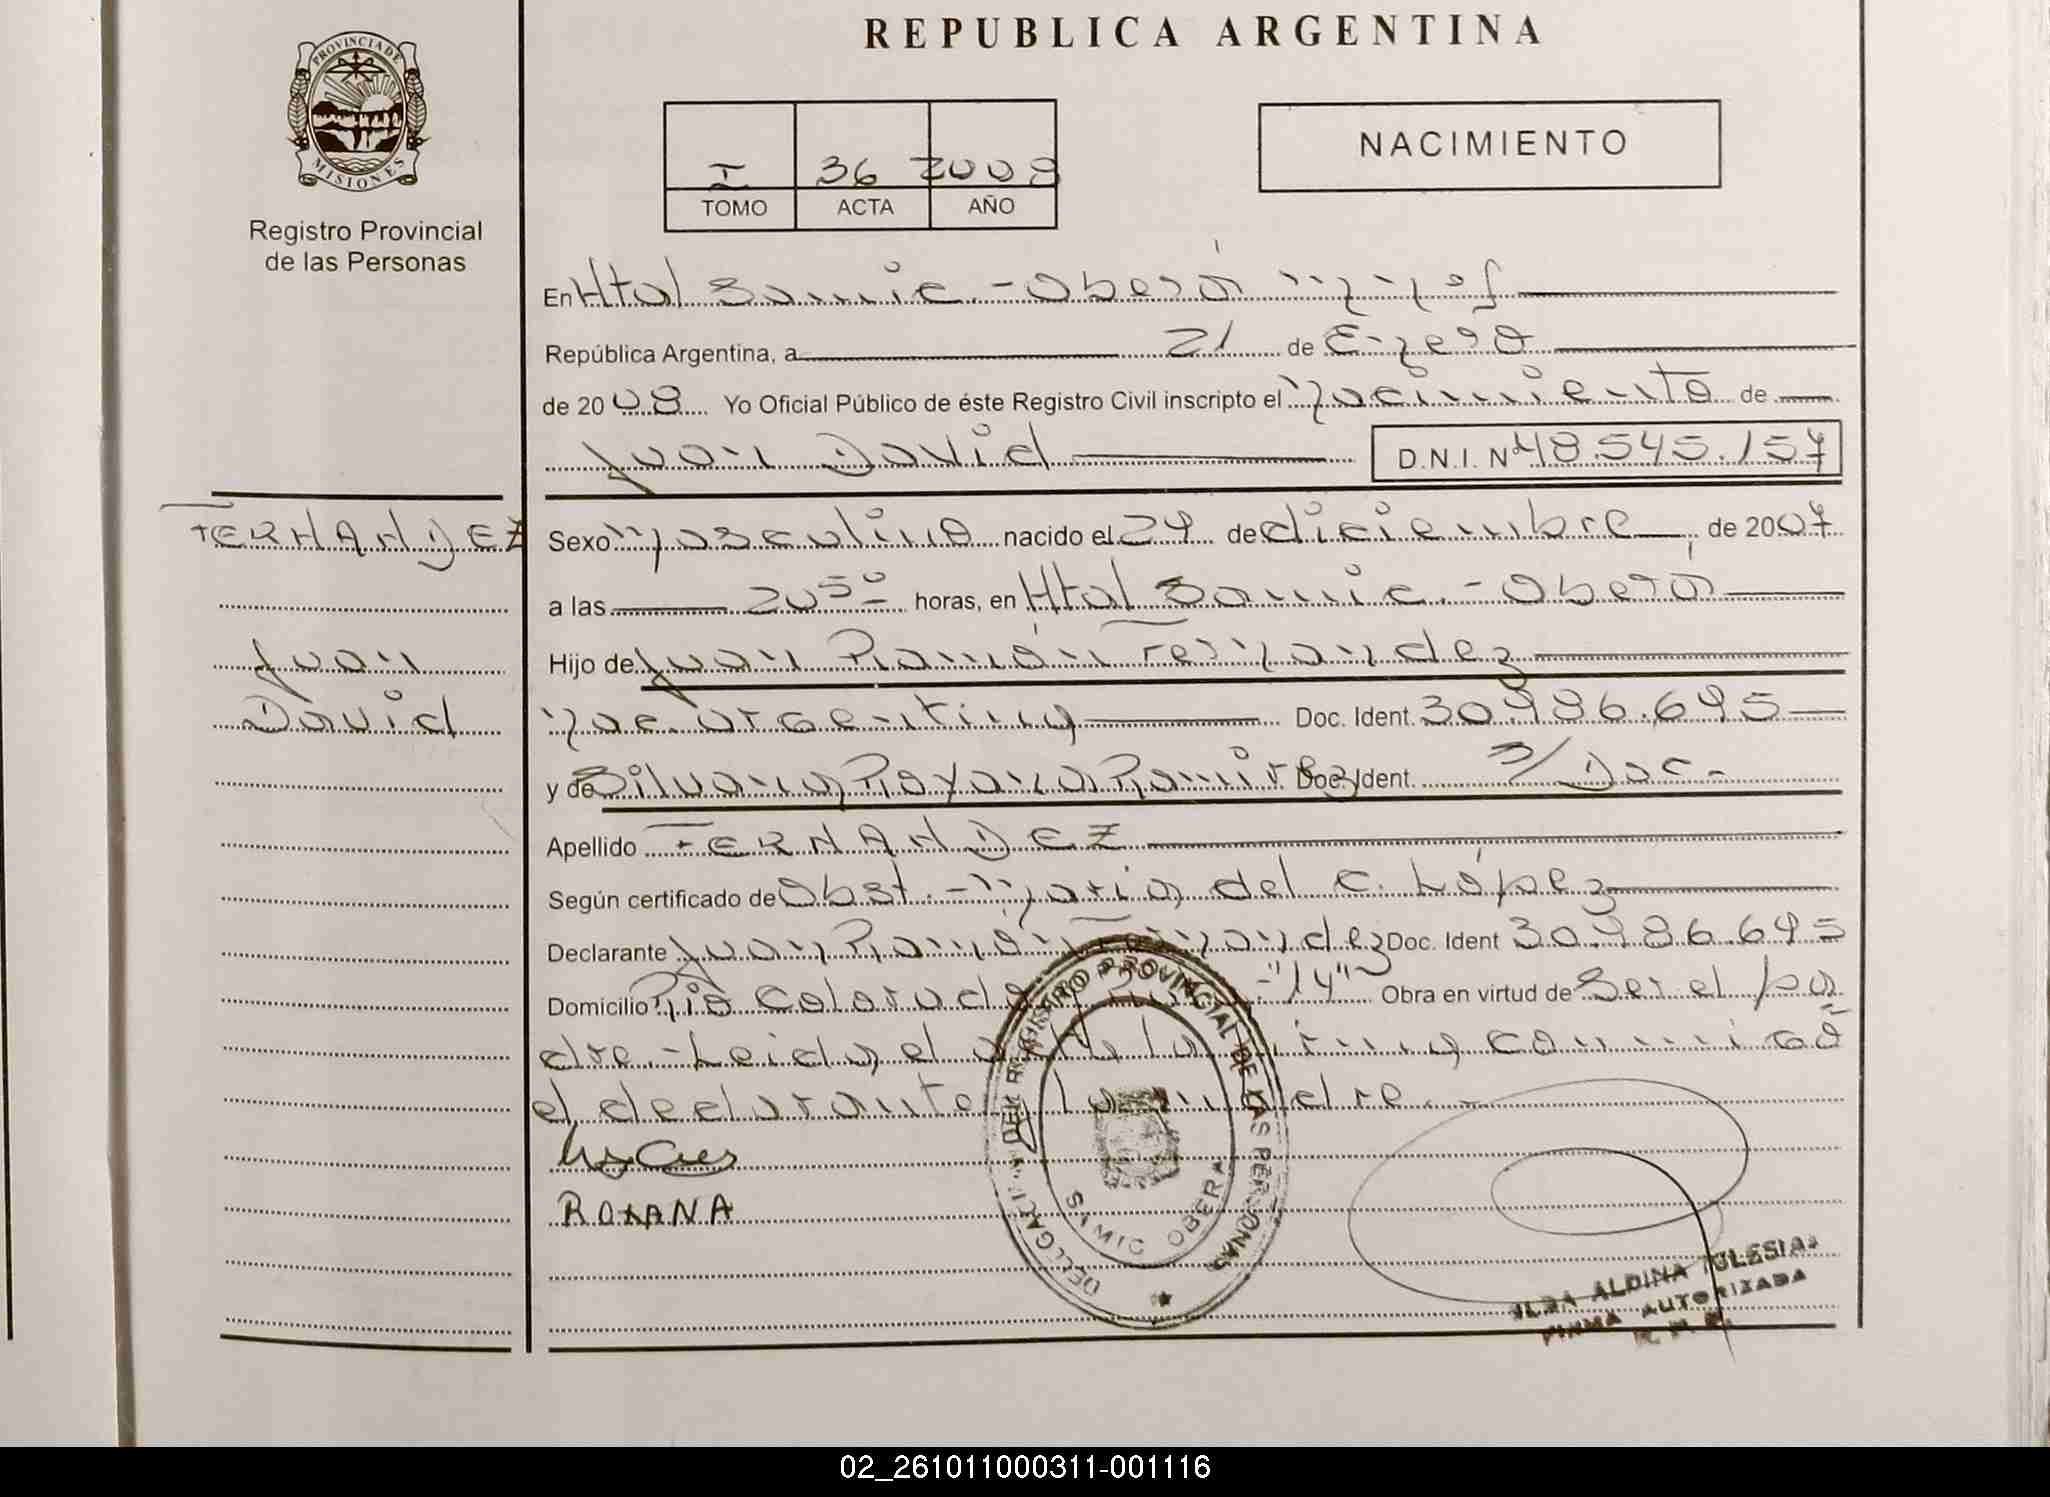 REPUBLICA ARGENTINA
PROVINCIA DE
MISIONES
Registro Provincial
de las Personas
I 36 2008
TOMO ACTA AÑO
NACIMIENTO
En Htal Samic.-Oberá Mnes
República Argentina, a 21 de Enero
de 2008 Yo Oficial Público de éste Registro Civil inscripto el Nacimiento de
Juan David D.N.I. Nº 48.545.157
FERNANDEZ
Juan
David
Sexo Masculino nacido el 29 de diciembre de 2007
a las 20 50 horas, en Htal Samic.-Oberá
Hijo de Juan Ramón Fernandez
Nac. argentina Doc. Ident. 30.986.695
y de Silvana Rayana Ramirez Doc. Ident. S/Doc.-
Apellido FERNANDEZ
Según certificado de Obst.-Maria del C. López
Declarante Juan Ramón Fernandez Doc. Ident 30.986.695
Domicilio Rio Colorado -"14" Obra en virtud de Ser el pa
dre.-Leida el acta la firma commigo
el declarante y la madre.-
ROXANA
REGISTRO PROVINCIAL DE LAS PERSONAS
SAMIC OBERA
ALDINA IGLESIAS
FIRMA AUTORIZADA
02_261011000311-001116